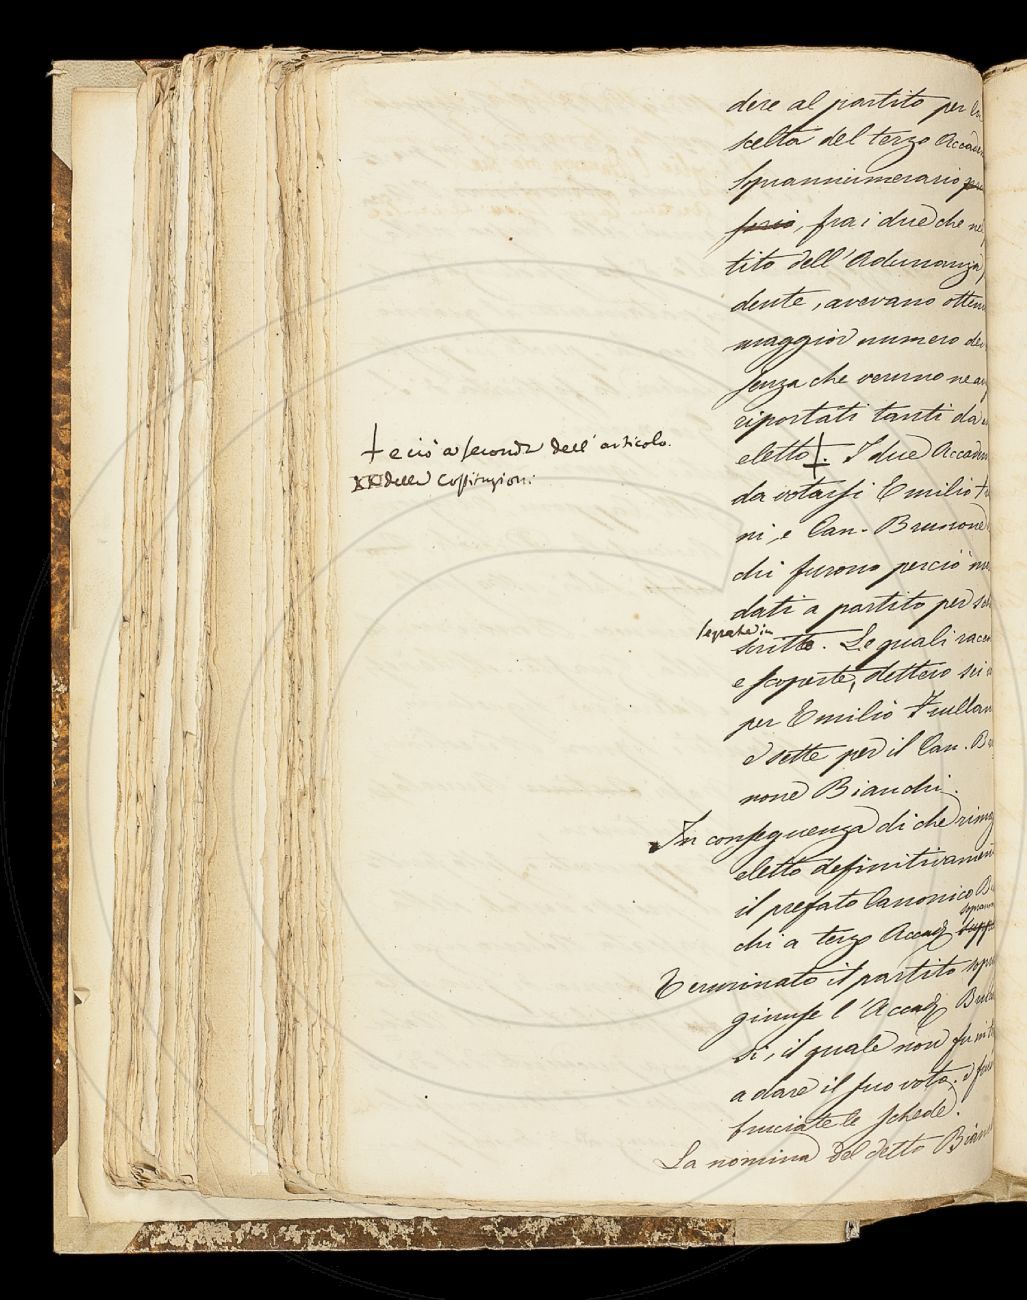 dere al partito per la
scelta del terzo Accade
Soprannumerario
, fra i due che nel
tito dell'Adunanza
dente, avevano otten
maggior numero de
senza che veruno ne a
riportati tanti da
eletto †. I due Accadem
† e ciò a seconda dell'articolo
XXI delle Costituzioni
da votarsi Emilio
ni, e Can. Brunone
chi furono perciò
dati a partito per
segrete in
scritto. Le quali racc
e scoperte, dettero sei
per Emilio Frullan
e sette per il Can. B
none Bianchi.
In conseguenza di che rima
eletto definitivamen
il prefato Canonico B
sopran
chi a terzo Accad.
Terminato il partito sopr
giunse l'Accad.
si, il quale non fu
a dare il suo voto; e
bruciate le schede.
La nomina del detto Bian